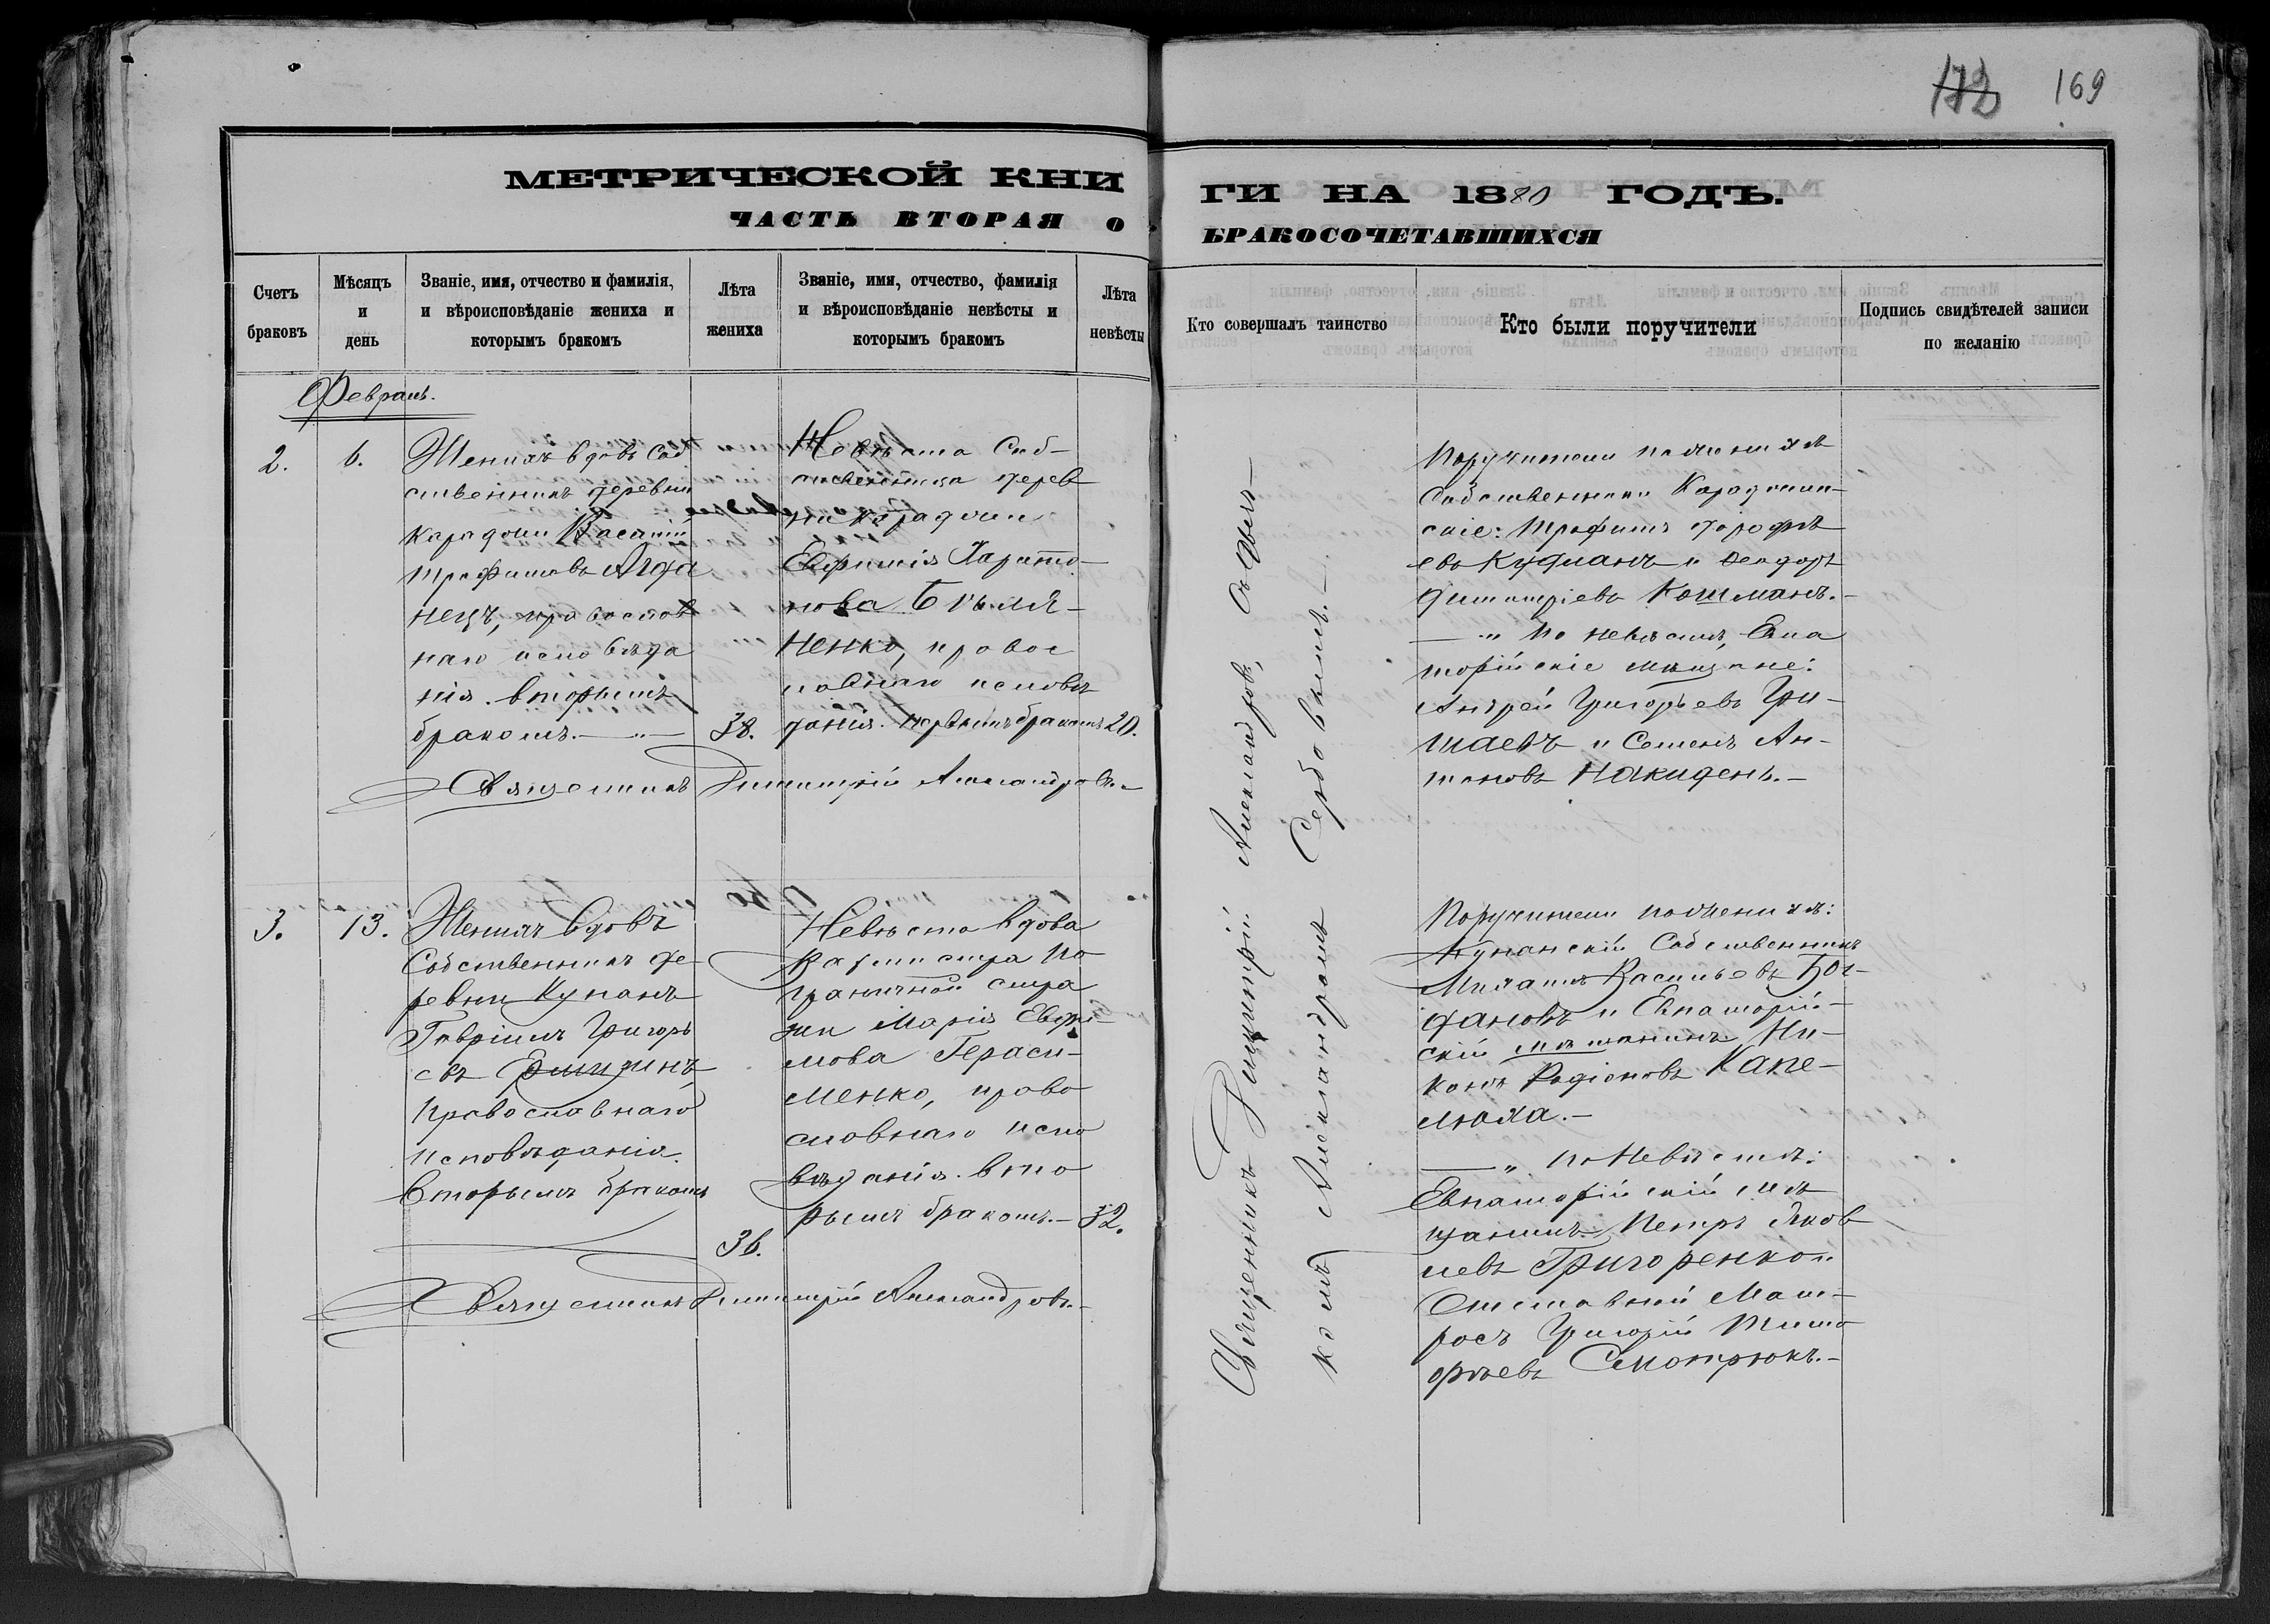 172 169
МЕТРИЧЕСКОЙ КНИ
ГИ НА 1880 ГОДЪ.
ЧАСТЬ ВТОРАЯ о
БРАКОСОЧЕТАВШИХСЯ
Счетъ
браковъ
Мѣсяцъ
и
день
Званіе, имя, отчество и фамилія,
и вѣроисповѣданіе жениха и
которымъ бракомъ
Лѣта
жениха
Званіе, имя, отчество, фамилія
и вѣроисповѣданіе невѣсты и
которымъ бракомъ
Лѣта
невѣсты
Кто совершалъ таинство
Кто были поручители
Подпись свидѣтелей записи
по желанію
Февраль.
2.
6.
Женихъ вдовъ Соб
ственникъ деревни
Карадочи Василій
Трофимовъ
нецъ, православ
наго исповѣда
нія. вторымъ
бракомъ.
38.
Невѣста Соб-
ственница дерев
ни Карадочи
Евфимія Харито-
нова
ненко, правос
лавнаго исповѣ
данія. первымъ бракомъ
20.
Священникъ Димитрій Александровъ.
Священникъ Димитрій Александровъ, съ
комъ Александромъ
Поручители по женихѣ
Собственники
скіе: Трофимъ Дорофѣ
евъ Куцманъ и Ѳеодоръ
Димитріевъ Кошманъ.
— " По невѣстѣ, Евпа
торійскіе мѣщане:
Андрей Григорьевъ Гри-
шаевъ и Семенъ Ан-
тоновъ Накидень.
3.
13.
Женихъ вдовъ
Собственникъ де-
ревни Кунанъ
Гавріилъ Григорь
евъ
православнаго
исповѣданія.
Вторымъ бракомъ
36.
Невѣста вдова
Вахмистра По-
граничной стра
жи Марія Евфи-
мова Гераси-
менко, право
славнаго испо
вѣданія. вто
рымъ бракомъ.
32.
Священникъ Димитрій Александровъ.
Поручители по женихѣ:
Кунанскій Собственникъ
Михаилъ Васильевъ Бог-
дановъ и Евпаторій-
скій мѣщанинъ Ни-
конъ Родіоновъ Капе-
люха.
— " по Невѣстѣ:
Евпаторійскій мѣ
щанинъ Петръ Яков
левъ Григоренко и
Отставной Мат-
росъ Григорій Тимо
фѣевъ Смотрюкъ.